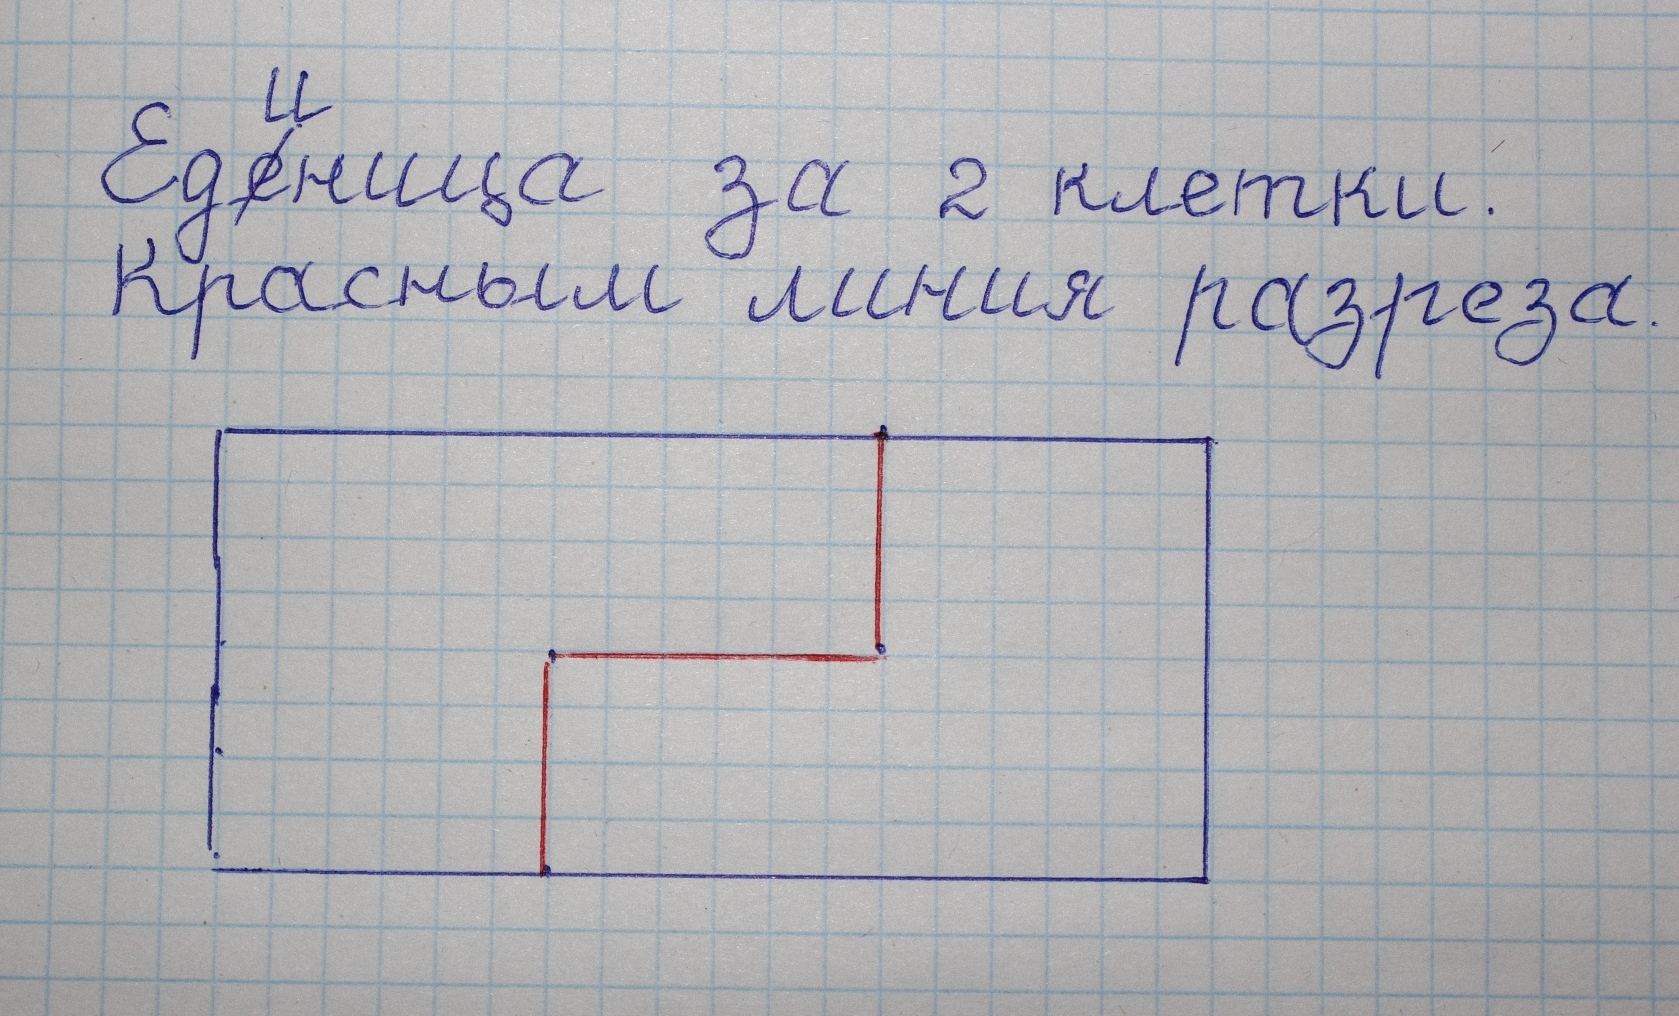 Единица за 2 клетки.
Красным линия разреза.